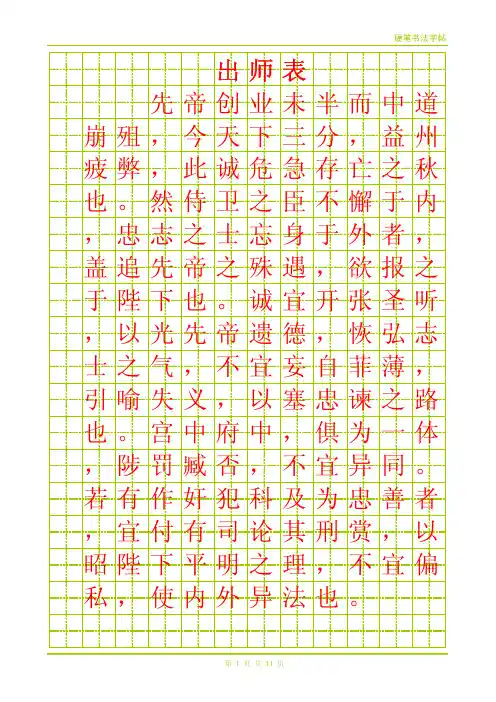 硬笔书法字帖
出师表
先帝创业未半而中道
崩殂，今天下三分，益州
疲弊，此诚危急存亡之秋
也。然侍卫之臣不懈于内
，忠志之士忘身于外者，
盖追先帝之殊遇，欲报之
于陛下也。诚宜开张圣听
，以光先帝遗德，恢弘志
士之气，不宜妄自菲薄，
引喻失义，以塞忠谏之路
也。宫中府中，俱为一体
，陟罚臧否，不宜异同。
若有作奸犯科及为忠善者
，宜付有司论其刑赏，以
昭陛下平明之理，不宜偏
私，使内外异法也。
第 1 页 共 11 页